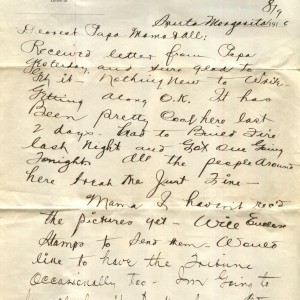 8/9
Santa Margarita 191
Dearest Papa Mama & all:
Received letter from Papa
yesterday, and sure glad to
get it. Nothing New to write
Getting along O.K. It has
Been pretty Cool here last
2 days. Had to Build Fire
last Night and Got One Going
Tonight. All the people around
here treat me Just Fine—
Mama I haven't rec'd
the pictures yet — Will Enclose
Stamps to Send them — Would
like to have the Tribune
Occasionally too — I'm Going to